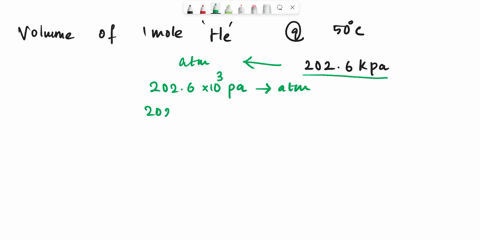 Volume of 1 mole 'He' @ 50°C
atm ← 202.6 kpa
202.6 × 10³ pa → atm
202